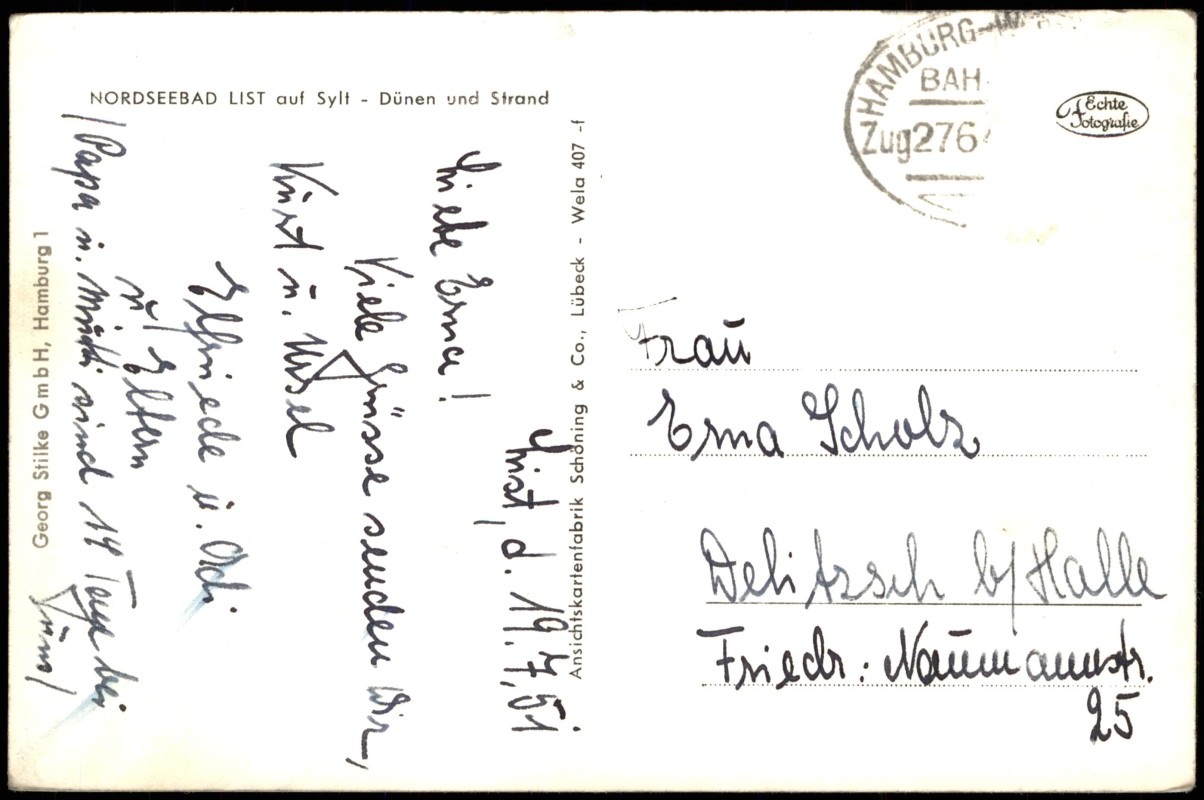 NORDSEEBAD LIST auf Sylt - Dünen und Strand
List, d. 19.7.51
Liebe Erna!
Viele Grüsse senden Dir,
Kurt u. Ursel
Elfriede u.
u. Eltern
/Papa u. Mutti sind 14 Tage bei
uns/
Georg Stilke GmbH, Hamburg 1
Ansichtskartenfabrik Schöning & Co., Lübeck - Wela 407 -f
HAMBURG-W
BAH
Zug 276
Echte
Fotografie
Frau
Erna Scholz
Delitzsch b/Halle
Friedr. Naumannstr.
25